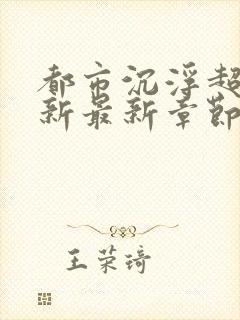 都市沉浮超
新最新章節
王荣琦